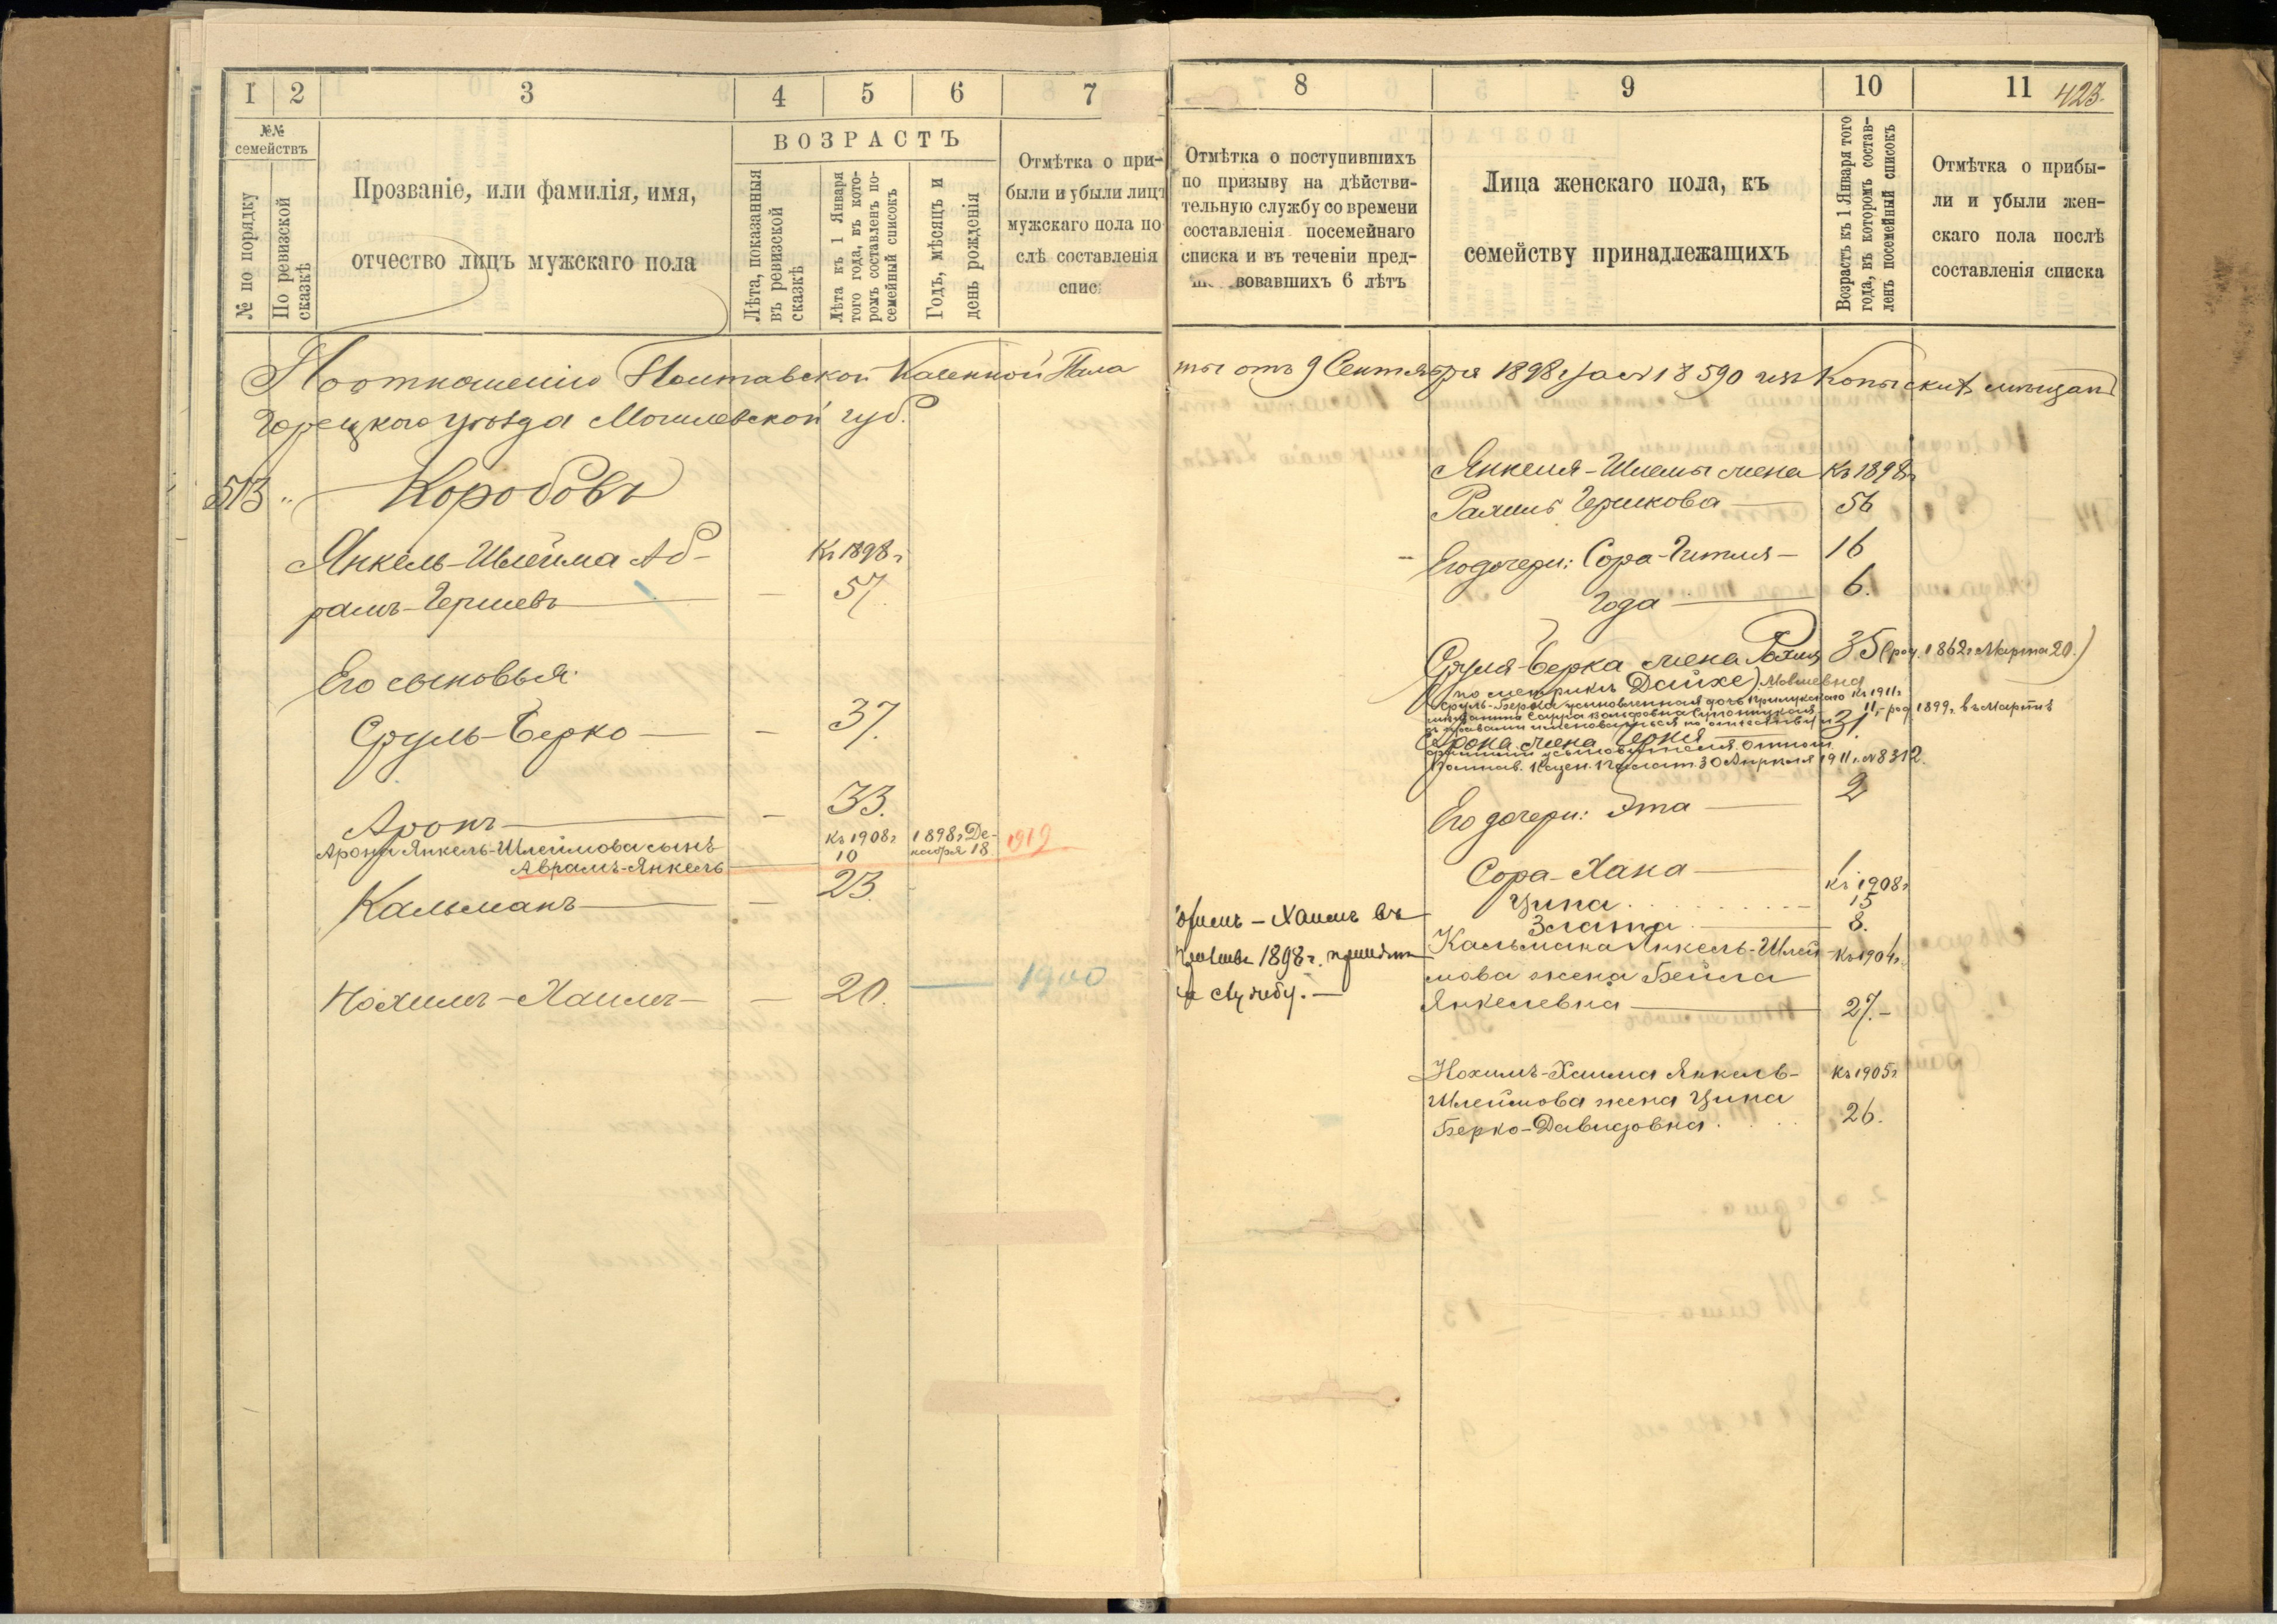 1 2 3 4 5 6 7
№№ семействъ
№ по порядку
По ревизской сказкѣ
Прозваніе, или фамилія, имя,
отчество лицъ мужскаго пола
ВОЗРАСТЪ
Лѣта, показанныя
въ ревизской
сказкѣ
Лѣта къ 1 Января
того года, въ кото-
ромъ составленъ по-
семейный списокъ
Годъ, мѣсяцъ и
день рожденія
Отмѣтка о при-
были и убыли лицъ
мужскаго пола по
слѣ составленія
спис
По отношенію Полтавской Казенной Пала
Горецкого уѣзда Могилевской губ.
513 Коробовъ
Янкель-Шлейма Аб-
Къ 1898 г
рамъ-Гершевъ — — 57.
Его сыновья:
Сруль-Берко — — 37.
Аронъ — — 33.
Арона Янкель-Шлеймова сынъ
Къ 1908 г 1898 г Де-
Аврамъ-Янкель — 10 кабря 18 1919
Кальманъ — — 23.
Нохимъ-Хаимъ — — 20. — 1900
8 9 10 11 423.
Отмѣтка о поступившихъ
по призыву на дѣйстви-
тельную службу со времени
составленія посемейнаго
списка и въ теченіи пред-
вовавшихъ 6 лѣтъ
Лица женскаго пола, къ
семейству принадлежащихъ
Возрастъ къ 1 Января того
года, въ которомъ состав-
ленъ посемейный списокъ
Отмѣтка о прибы-
ли и убыли жен-
скаго пола послѣ
составленія списка
ты отъ 9 Сентября 1898 г за № 18590 изъ Копыскихъ мѣщанъ
Янкеля-Шлемы жена Къ 1898 г
Рахиль Герикова — 56
Его дочери: Сора-Гитля — 16
Года — 6.
Сруля-Берка жена Рохля 35 (род. 1862 г Марта 20.)
(по метрикѣ Дайхе) Мовшевна
Сруль-Берка усыновленная дочь Прилукскаго Къ 1911 г
мѣщанина Сарра 11, род 1899 г. въ Мартѣ
Арона жена Черня — 31
Полтав. Казен. Палат. 30 Апрѣля 1911 г. № 8312.
Его дочери: Эта — 2
Сора-Хана — 1
Къ 1908 г
Ципа 15
Злата — 8.
Хаимъ въ
1898 г. принятъ
службу. —
Кальмана Янкель-Шлей- Къ 1904 г.
мова жена Бейла
Янкелевна — 27. —
Нохимъ-Хаима Янкель- Къ 1905 г
Шлеймова жена Ципа
Берко-Давидовна 26.